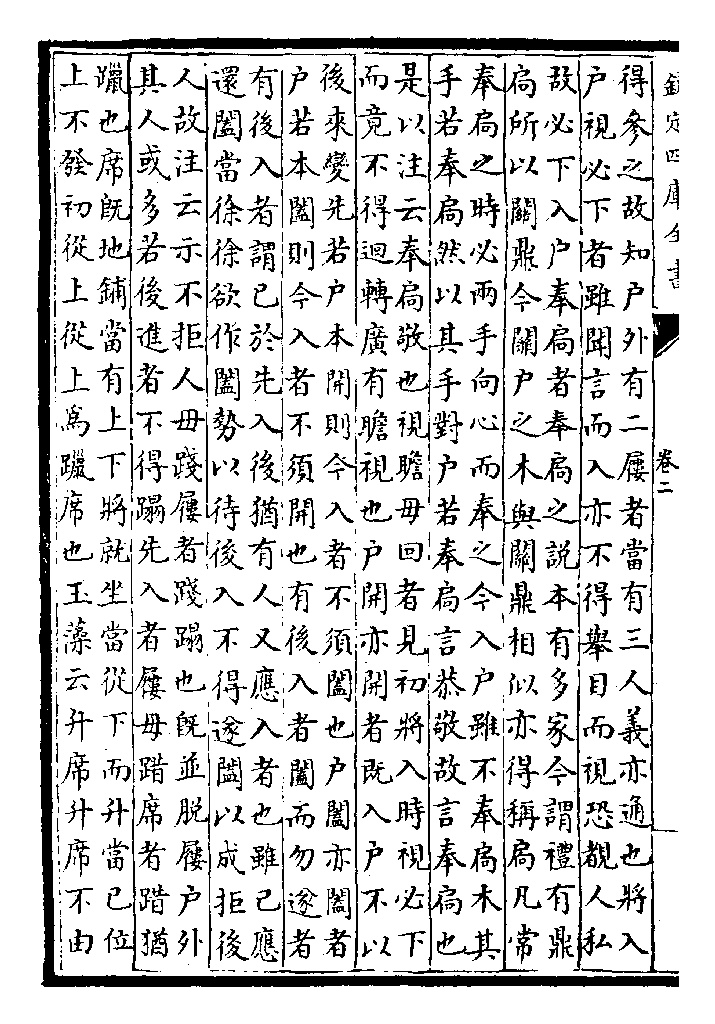 欽定四庫全書
卷二
得參之故知户外有二屨者當有三人義亦通也將入
户視必下者雖聞言而入亦不得舉目而視恐覩人私
故必下入户奉扃者奉扃之說本有多家今謂禮有鼎
扃所以關鼎今關户之木與關鼎相似亦得稱扃凡常
奉扃之時必兩手向心而奉之今入户雖不奉扃木其
手若奉扃然以其手對户若奉扃言恭敬故言奉扃也
是以注云奉扃敬也視瞻毋回者見初將入時視必下
而竟不得迴轉廣有瞻視也户開亦開者既入户不以
後來變先若户本開則今入者不須闔也户闔亦闔者
户若本闔則今入者不須開也有後入者闔而勿遂者
有後入者謂已於先入後猶有人又應入者也雖已應
還闔當徐徐欲作闔勢以待後入不得遂闔以成拒後
人故注云示不拒人毋踐屨者踐蹋也既並脱屨户外
其人或多若後進者不得蹋先入者屨毋踖席者踖猶
躐也席既地鋪當有上下將就坐當從下而升當已位
上不發初從上從上為躐席也玉藻云升席升席不由